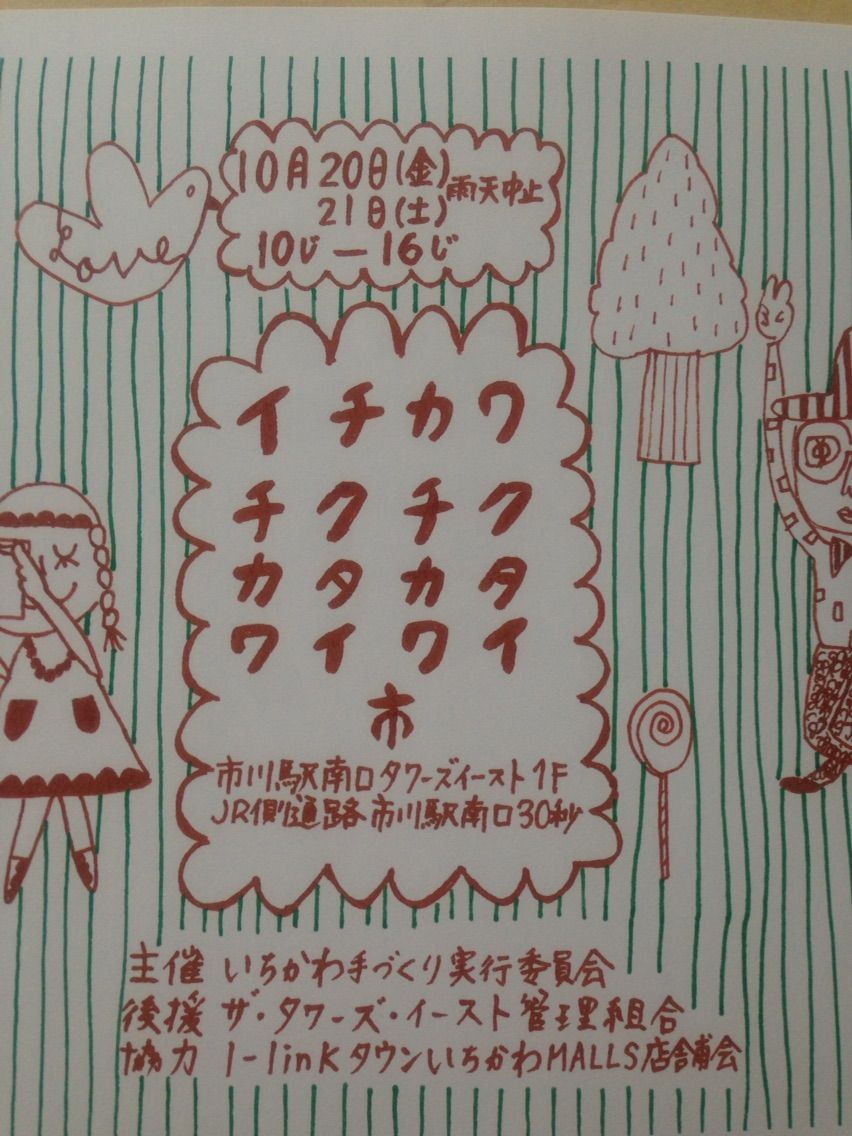 Love
10月20日(金)
21日(土)
雨天中止
10じ―16じ
イチカワ
チクチク
カタカタ
ワイワイ
市
市川駅南口タワーズイースト1F
JR側通路市川駅南口30秒
主催 いちかわ手づくり実行委員会
後援 ザ・タワーズ・イースト管理組合
協力 I-linkタウンいちかわMALLS店舗会